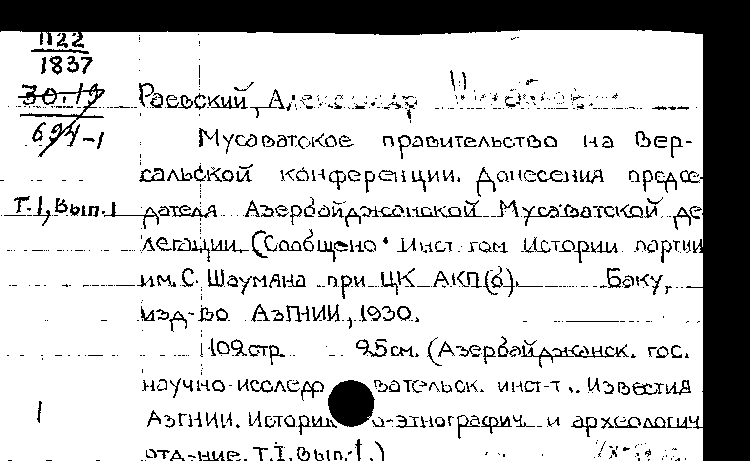 П22
1837
30.19
694-1
Раевский, Александр Михайлович
Мусаватское правительство на Вер-
сальской конференции. Донесения предсе-
Т.1, Вып.1
дателя Азербайджанской Мусаватской де
легации. (Сообщено Инст-том Истории партии
им. С. Шаумяна при ЦК АКП(б). Баку,
изд-во АзГНИИ, 1930.
109 стр. 25 см. (Азербайджанск. гос.
научно-исследовательск. инст-т.. Известия
1
АзГНИИ. Историко-этнографич. и археологич
отд-ние. Т.I. Вып.1.)